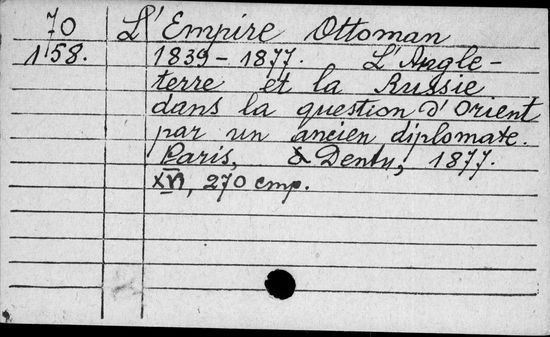 70 L'Empire Ottoman
158. 1839-1877. L'Angle-
terre et la Russie
dans la question d'Orient
par un ancien diplomate.
Paris, Dentu, 1877.
XVI, 270 стр.